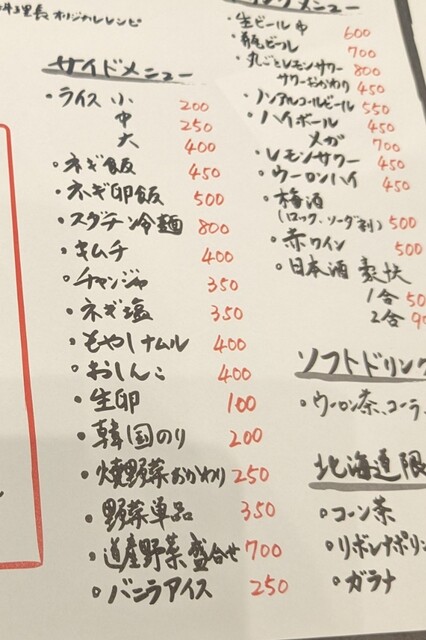 オリジナルレシピ
サイドメニュー
・ライス 小 200
中 250
大 400
・ネギ飯 450
・ネギ卵飯 500
・スダチン冷麺 800
・キムチ 400
・チャンジャ 350
・ネギ塩 350
・もやしナムル 400
・おしんこ 400
・生卵 100
・韓国のり 200
・焼野菜おかわり 250
・野菜単品 350
・道産野菜盛合せ 700
・バニラアイス 250
メニュー
・生ビール中 600
・瓶ビール 700
・丸ごとレモンサワー 800
サワーおかわり 450
・ノンアルコールビール 550
・ハイボール 450
メガ 700
・レモンサワー 450
・ウーロンハイ 450
・梅酒
(ロック、ソーダ割) 500
・赤ワイン 500
・日本酒 豪快
1合
2合
ソフトドリンク
・ウーロン茶、コーラ、
北海道限
・コーン茶
・リボンナポリン
・ガラナ